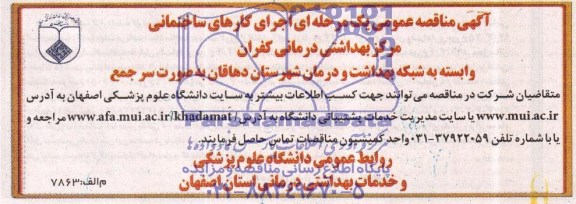 آگهی مناقصه عمومی یک مرحله ای اجرای کارهای ساختمانی
مرکز بهداشتی درمانی کفران
وابسته به شبکه بهداشت و درمان شهرستان دهاقان به صورت سر جمع
متقاضیان شرکت در مناقصه می توانند جهت کسب اطلاعات بیشتر به سایت دانشگاه علوم پزشکی اصفهان به آدرس
www.mui.ac.ir یا سایت مدیریت خدمات پشتیبانی دانشگاه به آدرس www.afa.mui.ac.ir/khadamat/ مراجعه و
یا با شماره تلفن ۳۷۹۲۲۰۵۹-۰۳۱ واحد کمیسیون مناقصات تماس حاصل فرمایند.
روابط عمومی دانشگاه علوم پزشکی
و خدمات بهداشتی درمانی استان اصفهان
م الف: ۷۸۶۳
پایگاه اطلاع رسانی مناقصه و مزایده
۰۲۱-۸۸۳۴۹۶۷۰-۵